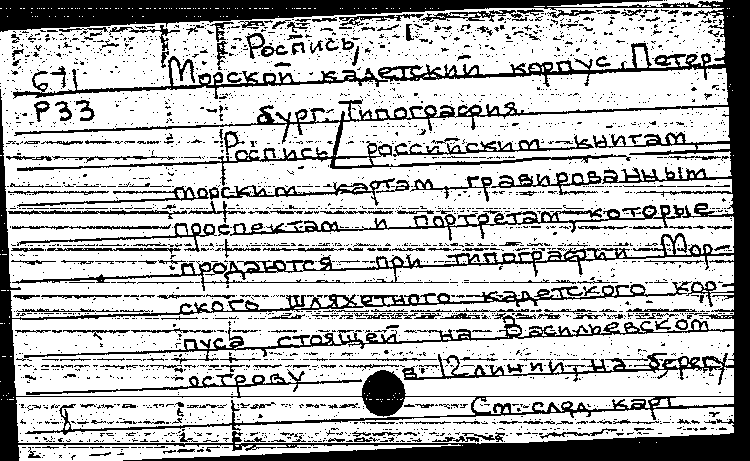 Роспись,
671 Морской кадетский корпус, Петер-
Р33 бург. Типография.
Роспись российским книгам,
морским картам, гравированным
проспектам и портретам, которые
продаются при типографии Мор-
ского шляхетного кадетского кор-
пуса, стоящей на Васильевском
острову в 12 линии, на берегу
8 См. след. карт